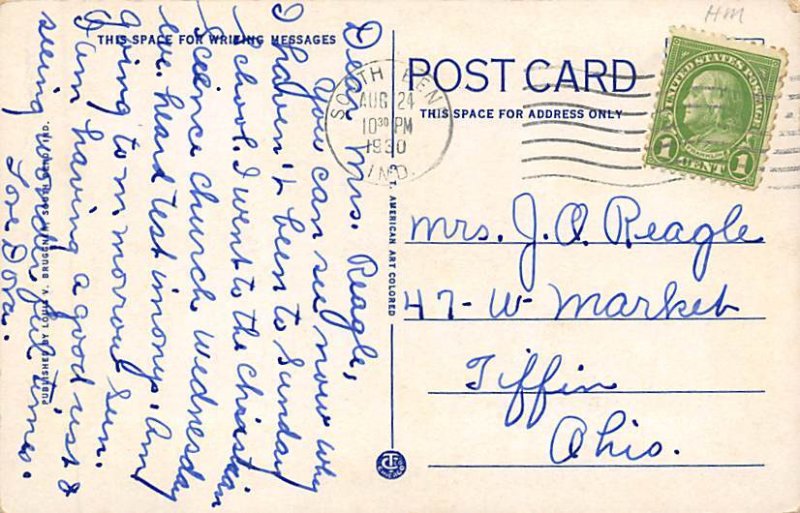 HM
THIS SPACE FOR WRITING MESSAGES
POST CARD
THIS SPACE FOR ADDRESS ONLY
SOUTH BEN
AUG 24
10 30 PM
1930
IND.
UNITED STATES POSTAGE
FRANKLIN
1 CENT 1
Dear Mrs. Reagle,
You can see now why
I haven't been to Sunday
School. I went to the Christian
Science church Wednesday
eve. heard testimonys. Am
Going to-morrow Sun.
I am having a good rest &
seeing wonderful times.
Love Dora.
Mrs. J. O. Reagle
47-W-Market
Tiffin
Ohio.
C. T. AMERICAN ART COLORED
PUBLISHED BY LOUIS V. BRUGGNER, SOUTH BEND, IND.